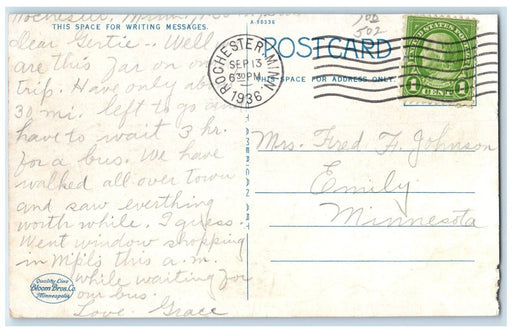 Rochester, Minn.
THIS SPACE FOR WRITING MESSAGES.
A-98336
Dear Gertie -- Well
are this far on our
trip. Have only abt
30 mi. left to go and
have to wait 3 hr.
for a bus. We have
walked all over town
and saw everthing
worth while. I guess.
Went window shopping
in Mpls this a.m.
while waiting for
our bus.
Love. Grace
Quality Line
Bloom Bros. Co.
Minneapolis
POSTCARD
THIS SPACE FOR ADDRESS ONLY.
502
ROCHESTER, MINN.
SEP 13
6 30 PM
1936
UNITED STATES POSTAGE
1 CENT 1
Mrs. Fred F. Johnson
Emily
Minnesota